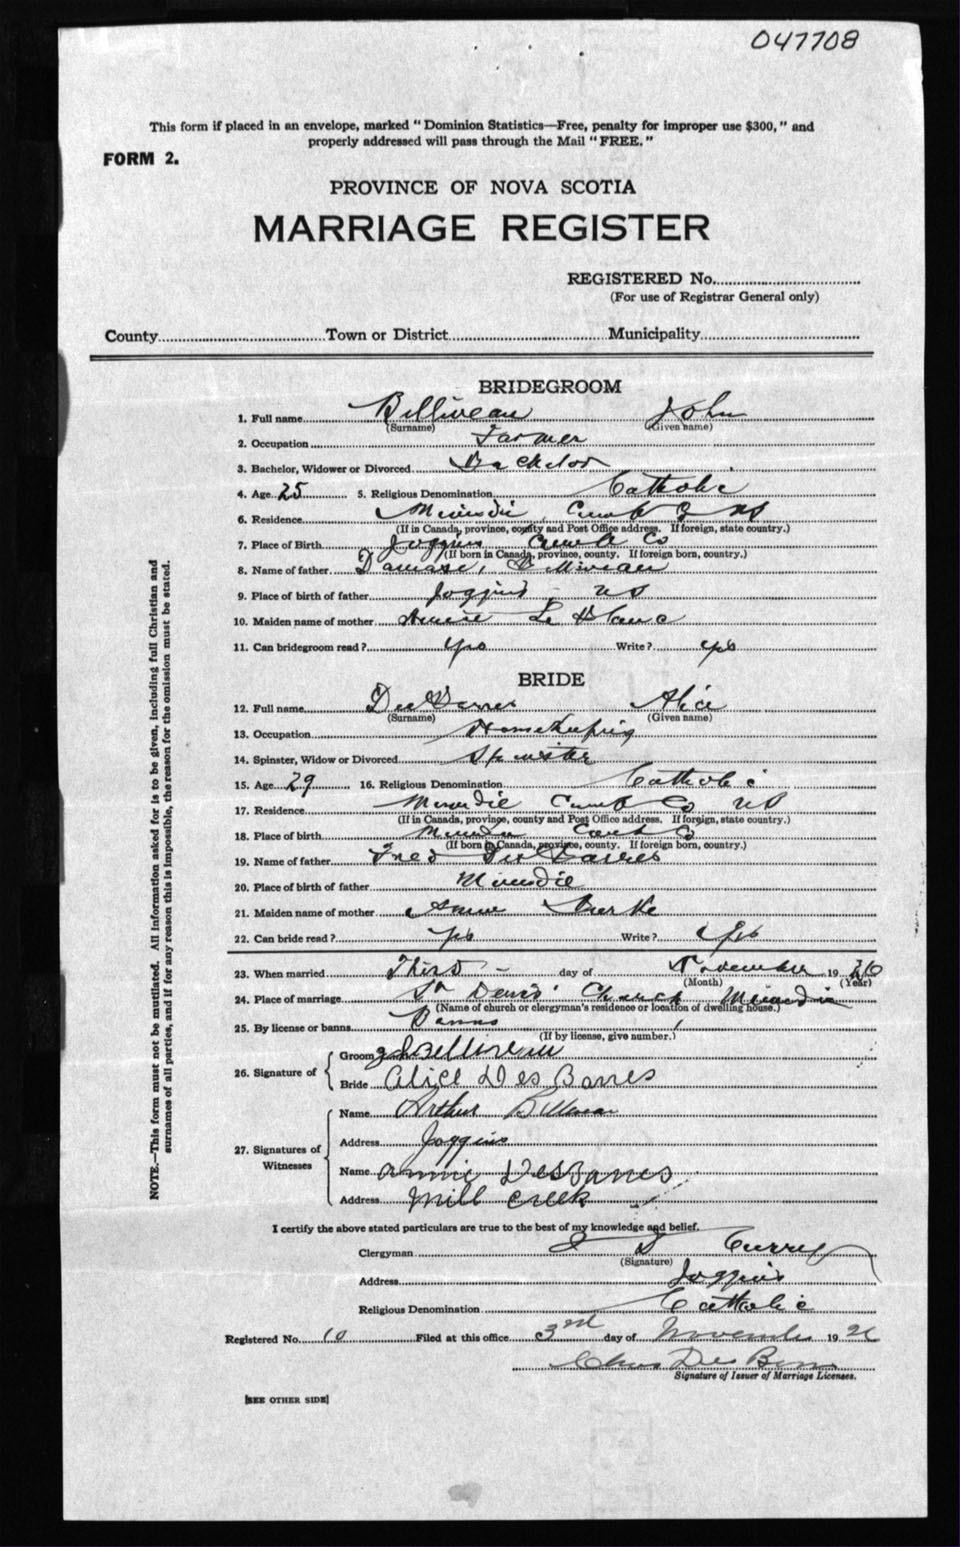 047708
This form if placed in an envelope, marked "Dominion Statistics—Free, penalty for improper use $300," and
properly addressed will pass through the Mail "FREE."
FORM 2.
PROVINCE OF NOVA SCOTIA
MARRIAGE REGISTER
REGISTERED No.
(For use of Registrar General only)
County Town or District Municipality
BRIDEGROOM
1. Full name Belliveau John
(Surname) (Given name)
2. Occupation Farmer
3. Bachelor, Widower or Divorced Bachelor
4. Age 25 5. Religious Denomination Catholic
6. Residence Minudie Cumb Co NS
(If in Canada, province, county and Post Office address. If foreign, state country.)
7. Place of Birth Joggins Cumb Co
(If born in Canada, province, county. If foreign born, country.)
8. Name of father Damase Belliveau
9. Place of birth of father Joggins NS
10. Maiden name of mother Le Blanc
11. Can bridegroom read? yes Write? yes
BRIDE
12. Full name DesBarres Alice
(Surname) (Given name)
13. Occupation Housekeeping
14. Spinster, Widow or Divorced Spinster
15. Age 29 16. Religious Denomination Catholic
17. Residence Minudie Cumb Co NS
(If in Canada, province, county and Post Office address. If foreign, state country.)
18. Place of birth Minudie Cumb Co
(If born in Canada, province, county. If foreign born, country.)
19. Name of father Fred DesBarres
20. Place of birth of father Minudie
21. Maiden name of mother Annie Burke
22. Can bride read? Yes Write? Yes
23. When married Third day of November 19 26
(Month) (Year)
24. Place of marriage St Denis' Church Minudie
(Name of church or clergyman's residence or location of dwelling house.)
25. By license or banns Banns
(If by license, give number.)
26. Signature of
Groom Belliveau
Bride Alice DesBarres
27. Signatures of Witnesses
Name Arthur Belliveau
Address Joggins
Name Annie DesBarres
Address Mill Creek
I certify the above stated particulars are true to the best of my knowledge and belief.
Clergyman Currey
(Signature)
Address Joggins
Religious Denomination Catholic
Registered No. 10 Filed at this office 3rd day of November 19 26
Chas DesBarres
Signature of Issuer of Marriage Licenses.
[SEE OTHER SIDE]
NOTE.—This form must not be mutilated. All information asked for is to be given, including full Christian and
surnames of all parties, and if for any reason this is impossible, the reason for the omission must be stated.